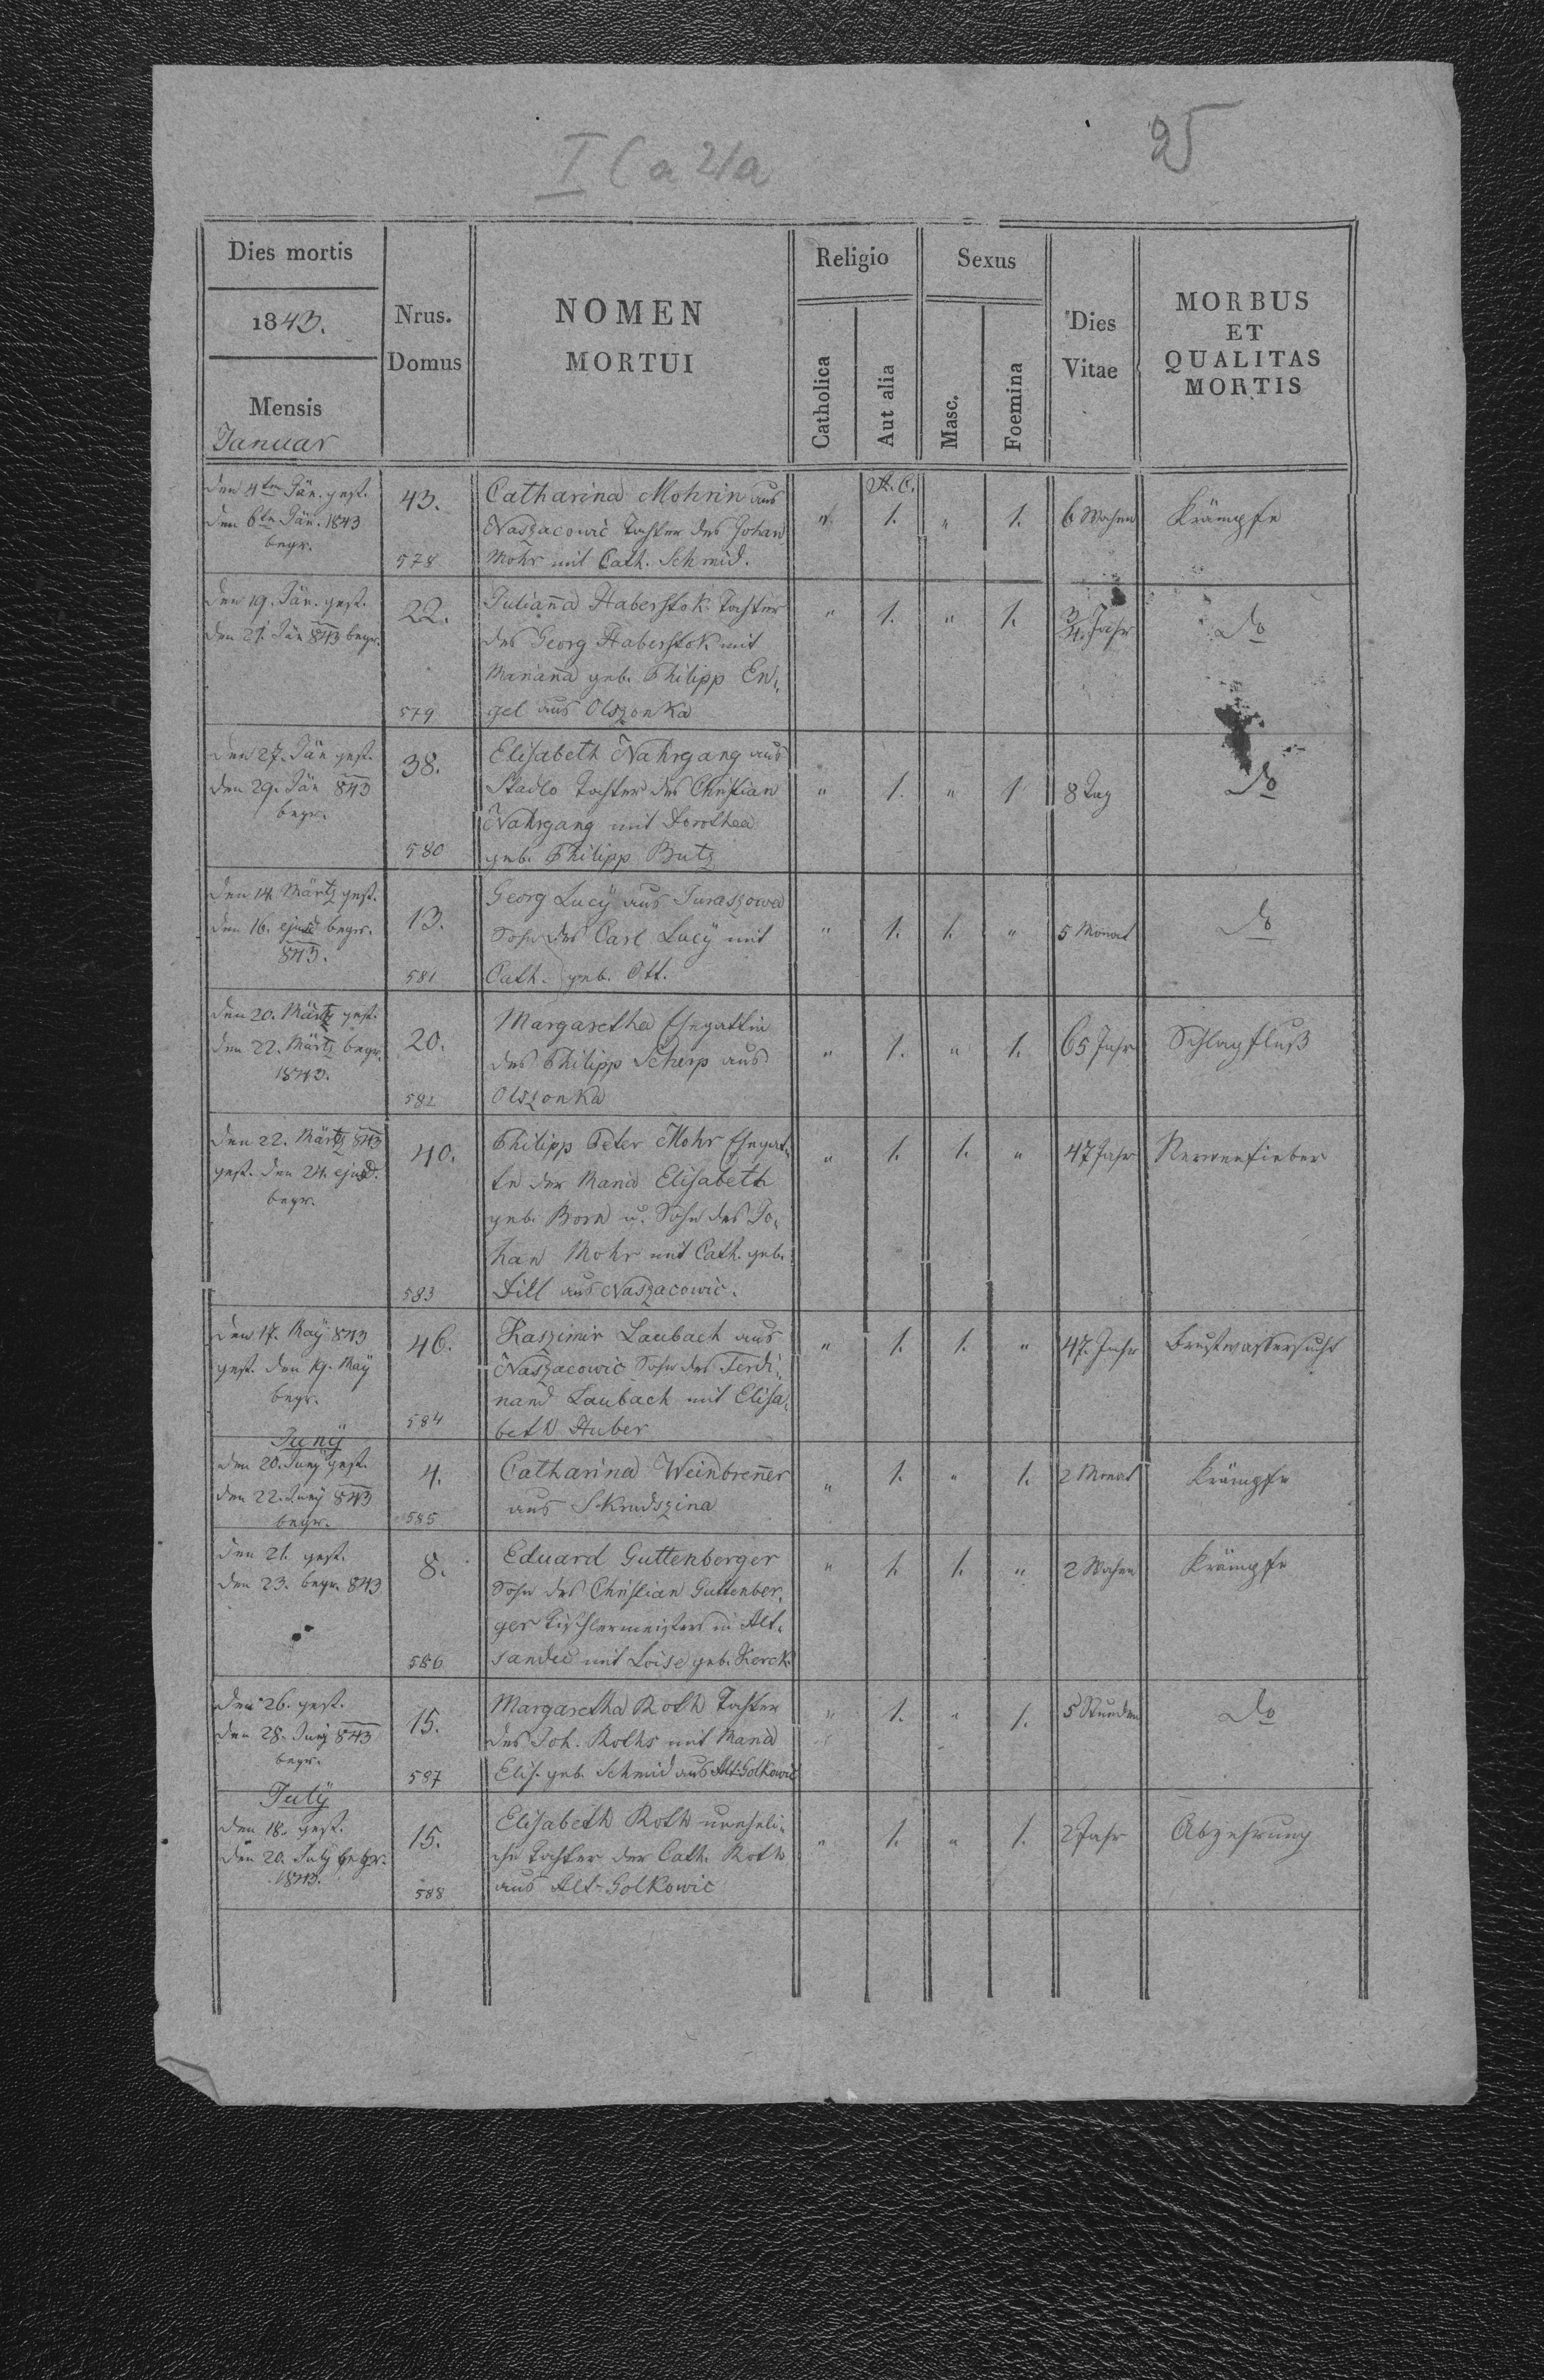 I C a 21a
25
Dies mortis
1843.
Mensis
Januar
Nrus.
Domus
NOMEN
MORTUI
Religio
Catholica
Aut alia
Sexus
Masc.
Foemina
Dies
Vitae
MORBUS
ET
QUALITAS
MORTIS
den 4ten Jän. gest.
den 6ten Jän. 1843
begr.
43.
578
Catharina Mohrin aus
Naszacowic Tochter des Johan
Mohr mit Cath. Schmid.
"
A. C.
1.
"
1.
6 Wochen
Krämpfe
den 19. Jän. gest.
den 21. Jän 843 begr.
22.
579
Julianna Haberstok Tochter
des Georg Haberstok mit
Marianna geb. Philipp En-
gel aus Olszonka
" 1. " 1.
3/4 Jahr
do
den 27. Jän gest.
den 29. Jän 843
begr.
38.
580
Elisabeth Nahrgang aus
Stadlo Tochter des Christian
Nahrgang mit Dorothea
geb. Philipp Butz
" 1. " 1
8 Tag
do
den 14. Märtz gest.
den 16. ejusd begr.
843.
13.
581
Georg Lucÿ aus Juraszowa
Sohn des Carl Lucÿ mit
Cath. geb. Ott.
" 1. 1. "
5 Monat
do
den 20. Märtz gest.
den 22. Märtz begr.
1843.
20.
582
Margaretha Ehegattin
des Philipp Scherp aus
Olszonka
" 1. " 1.
65 Jahr
Schlagfluß
den 22. Märtz 843
gest. den 24. ejusd.
begr.
40.
583
Philipp Peter Mohr Ehegat-
te der Maria Elisabeth
geb. Born u. Sohn des Jo-
han Mohr mit Cath. geb.
Dill aus Naszacowic.
" 1. 1. "
47 Jahr
Nervenfieber
den 17. Maÿ 843
gest. den 19. Maÿ
begr.
46.
584
Kaszimir Laubach aus
Naszacowic Sohn des Ferdi-
nand Laubach mit Elisa-
beth Huber
" 1. 1. "
47. Jahr
Brustwassersucht
Junÿ
den 20. Junÿ gest.
den 22. Junÿ 843
begr.
4.
585
Catharina Weinbrenner
aus Skrudszina
" 1. " 1.
2 Monat
Krämpfe
den 21. gest.
den 23. begr. 843
8.
586
Eduard Guttenberger
Sohn des Christian Guttenber-
ger Tischlermeisters in Alt-
sandec mit Loise geb. Zierck
" 1. 1. "
2 Wochen
Krämpfe
den 26. gest.
den 28. Junÿ 843
begr.
15.
587
Margaretha Roth Tochter
des Joh. Roths mit Maria
Elis. geb. Schmid aus Alt-Golkowic
" 1. " 1.
5 Stunden
do
Julÿ
den 18. gest.
den 20. Julÿ begr.
1843.
15.
588
Elisabeth Roth uneheli-
che Tochter der Cath. Roth
aus Alt-Golkowic
" 1. " 1.
2 Jahr
Abzehrung